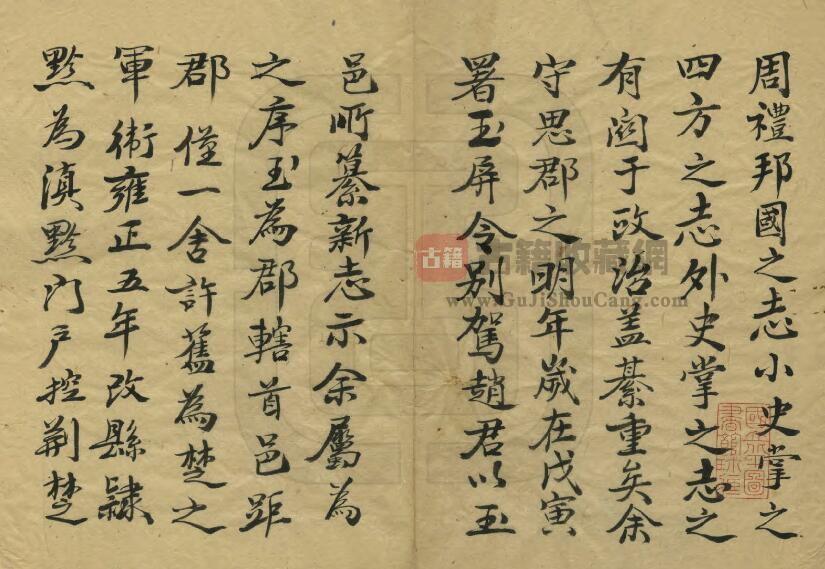 周禮邦國之志小史掌之
四方之志外史掌之志之
有関于政治盖綦重矣余
守思郡之明年歲在戊寅
署玉屏令别駕趙君以玉
邑所纂新志示余屬為
之序玉為郡轄首邑距
郡僅一舍許舊為楚之
軍衛雍正五年改縣隸
黔為滇黔门户控荆楚
古籍
古籍收藏網
www.GuJiShouCang.com